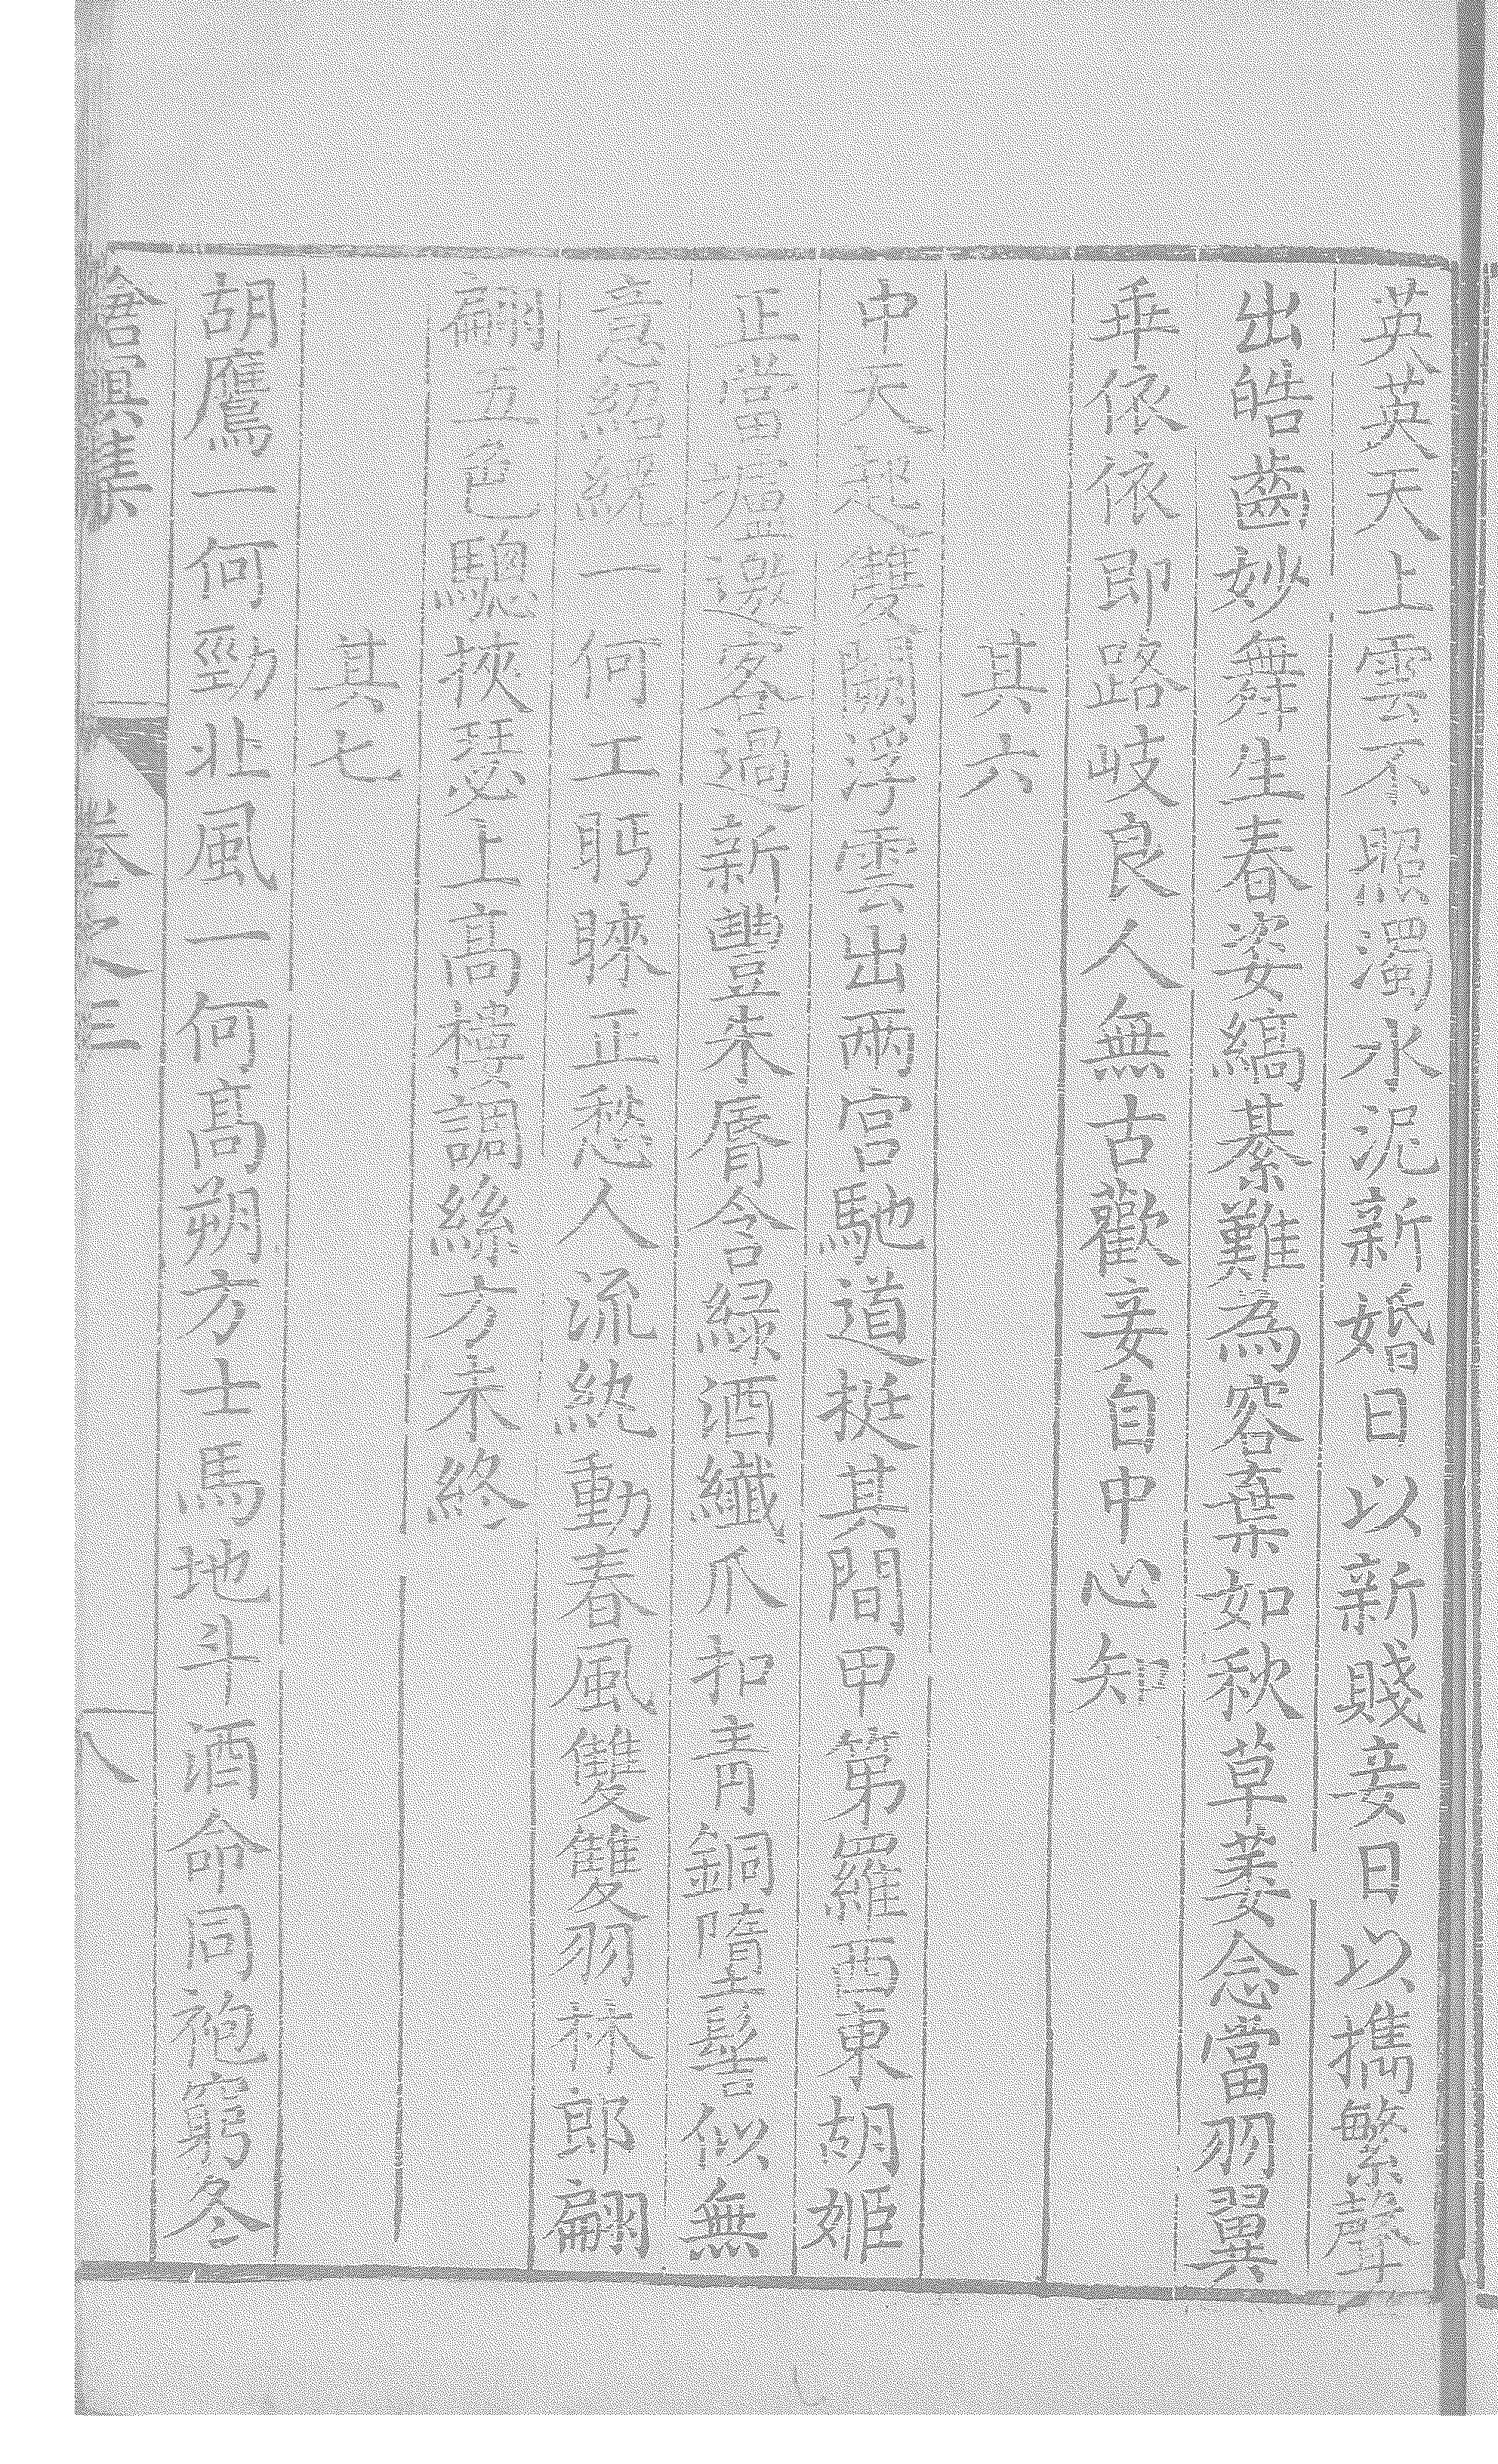 英英天上雲不照濁水泥新婚日以新賤妾日以攜繁聲
出皓齒妙舞生春姿縞綦難為容棄如秋草萎念當羽翼
乖依依即路岐良人無古歡妾自中心知
其六
中天起雙闕浮雲出兩宮馳道挺其間甲第羅西東胡姬
正當壚邀客過新豐朱脣含綠酒纖爪扣青銅墮髻似無
意紹絖一何工眄睞正愁人流絖動春風雙雙羽林郎翩
翩五色驄挾瑟上高樓調絲方未終
其七
胡鷹一何勁北風一何高朔方士馬地斗酒命同袍窮冬
滄溟集 卷之三 八